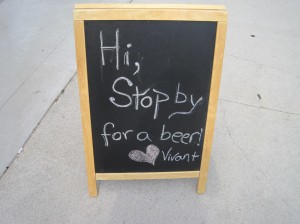 Hi,
Stop by
for a beer!
Vivant